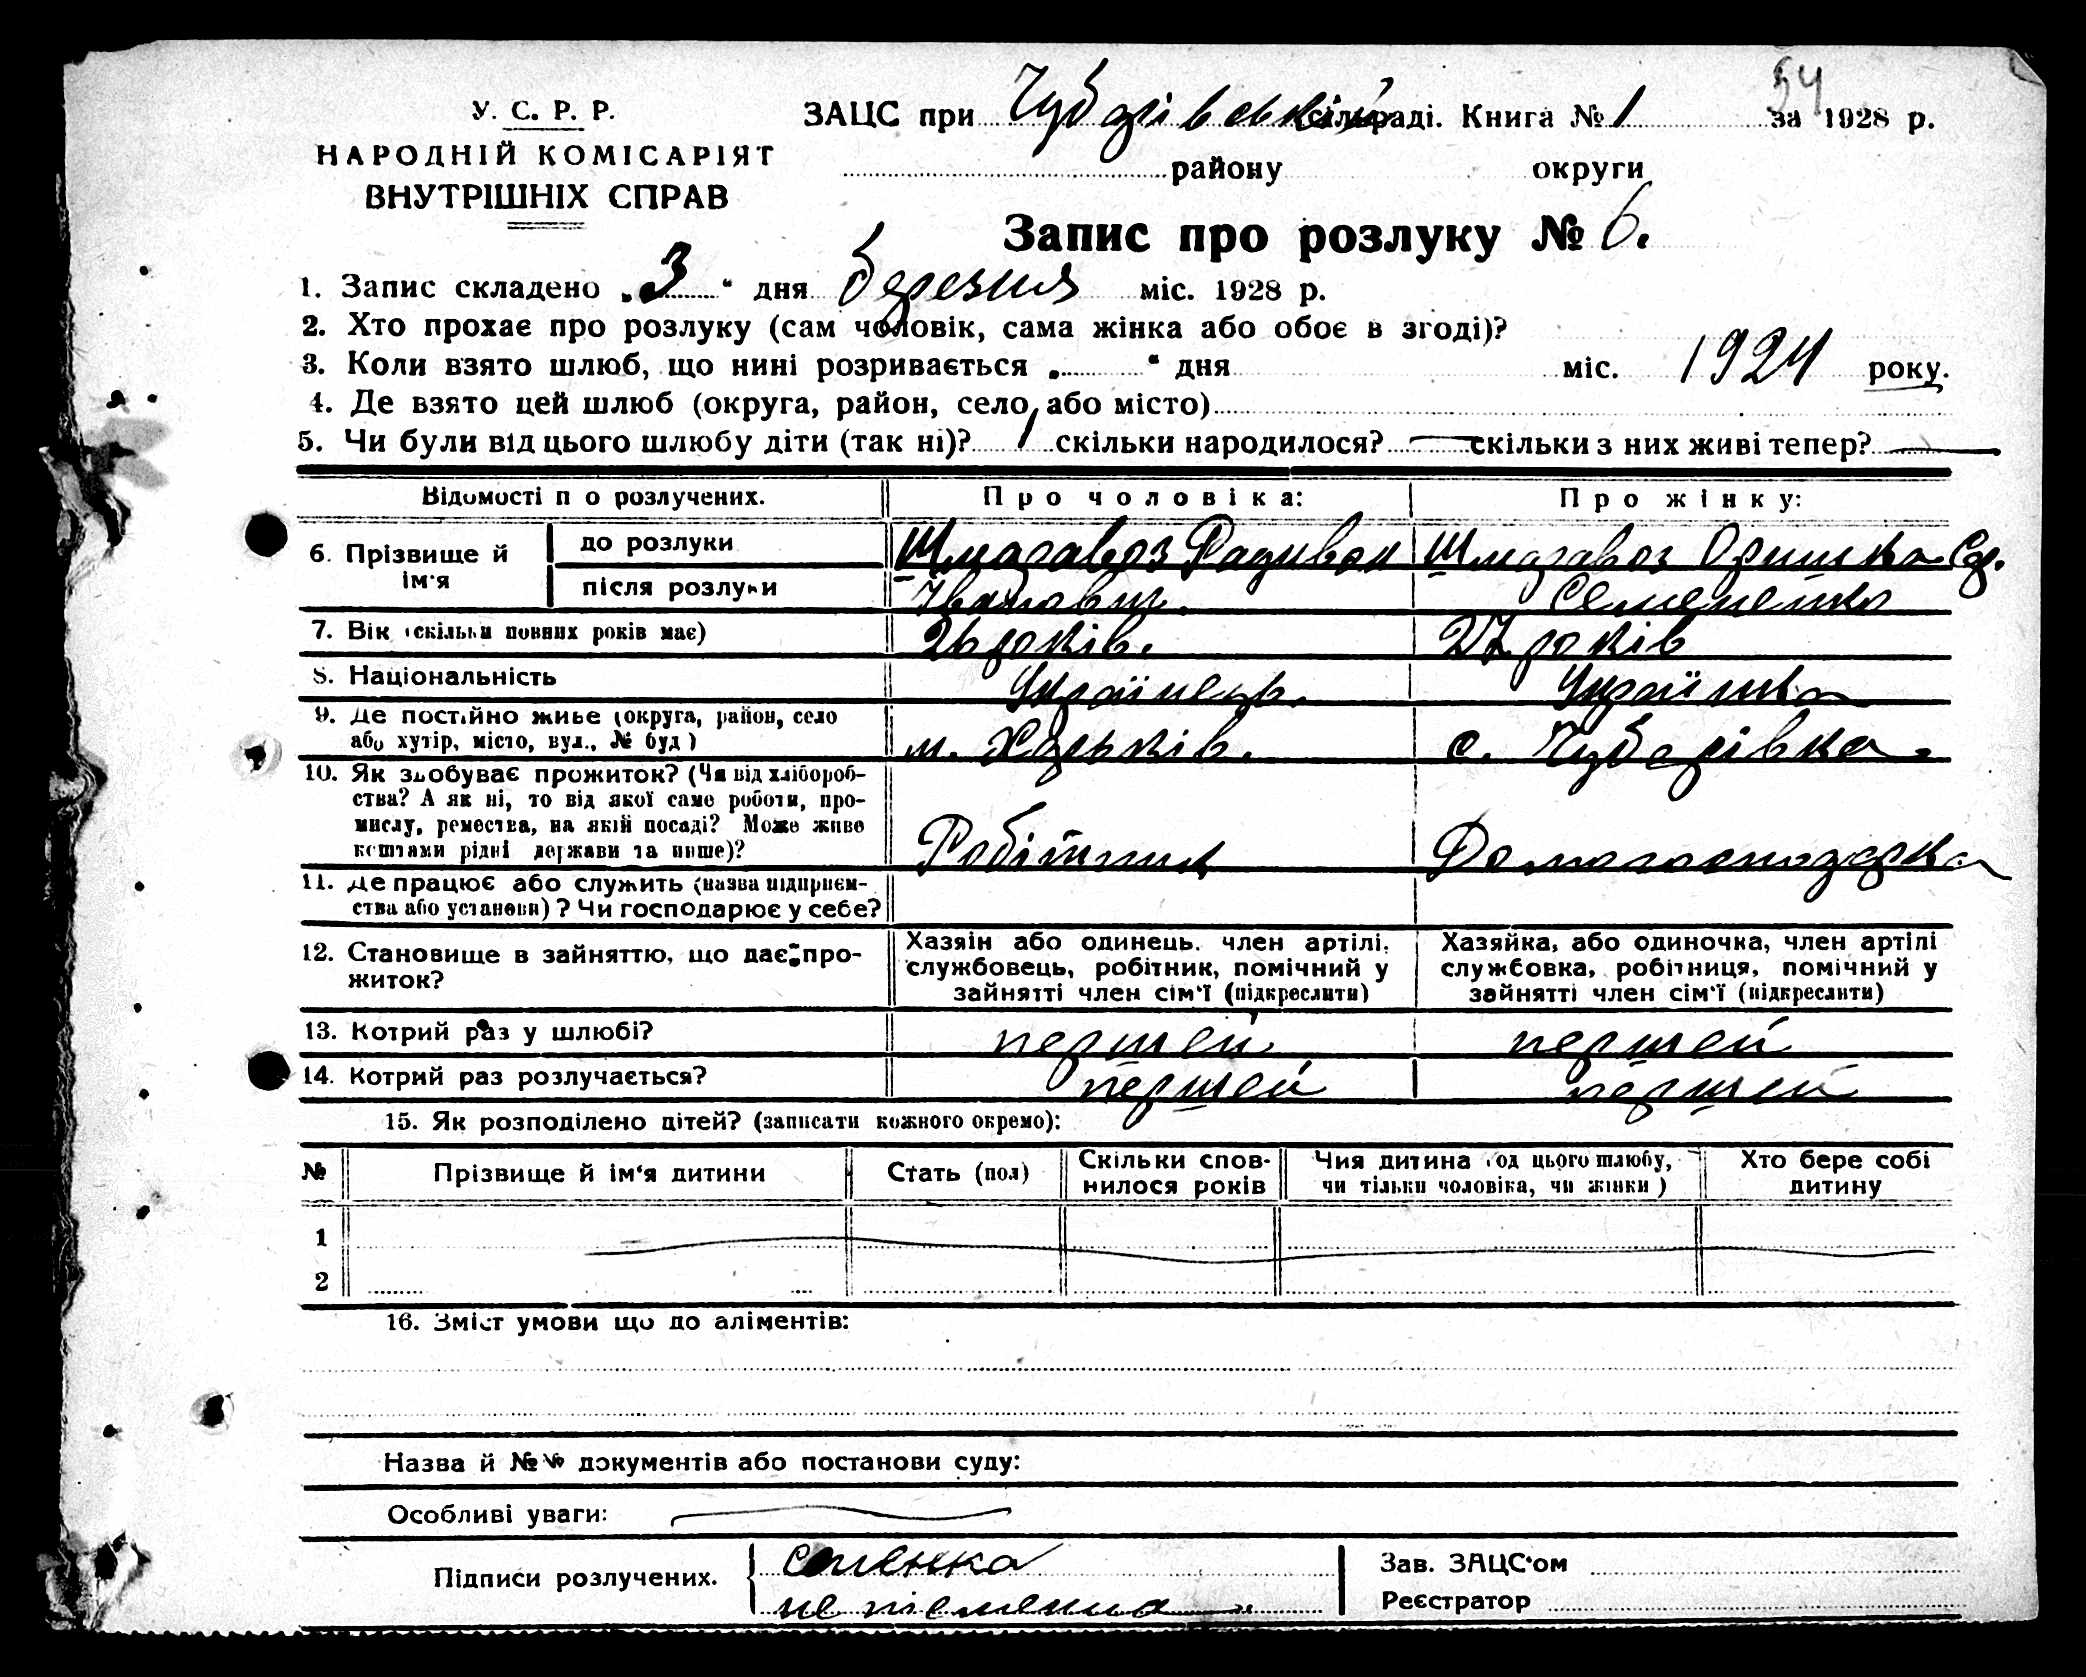 54
У. С. Р. Р.
НАРОДНІЙ КОМІСАРІЯТ
ВНУТРІШНІХ СПРАВ
ЗАЦС при Чубарівській сільраді. Книга № 1 за 1928 р.
району округи
Запис про розлуку № 6.
1. Запис складено „3“ дня березня міс. 1928 р.
2. Хто прохає про розлуку (сам чоловік, сама жінка або обоє в згоді)?
3. Коли взято шлюб, що нині розривається „ “ дня міс. 1924 року.
4. Де взято цей шлюб (округа, район, село або місто)
5. Чи були від цього шлюбу діти (так ні)? 1 скільки народилося? — скільки з них живі тепер? —
Відомості по розлучених. Про чоловіка: Про жінку:
6. Прізвище й ім'я до розлуки Шмаравоз Радивон Шмаравоз Оришка
після розлуки Іванович. Семененко
7. Вік (скільки повних років має) 26 років. 27 років
8. Національність Українець. Українка
9. Де постійно живе (округа, район, село
або хутір, місто, вул., № буд) м. Харьків. с. Чубарівка.
10. Як здобуває прожиток? (Чи від хлібороб-
ства? А як ні, то від якої саме роботи, про-
мислу, ремества, на якій посаді? Може живе
коштами рідні держави та инше)? Робітник Домогосподарка
11. Де працює або служить (назва підприєм-
ства або установи)? Чи господарює у себе?
12. Становище в зайняттю, що дає про-
житок?
Хазяін або одинець, член артілі,
службовець, робітник, помічний у
зайнятті член сім'ї (підкреслити)
Хазяйка, або одиночка, член артілі
службовка, робітниця, помічний у
зайнятті член сім'ї (підкреслити)
13. Котрий раз у шлюбі? першей першей
14. Котрий раз розлучається? першей першей
15. Як розподілено дітей? (записати кожного окремо):
№ Прізвище й ім'я дитини Стать (пол) Скільки спов-
нилося років Чия дитина (од цього шлюбу,
чи тільки чоловіка, чи жінки) Хто бере собі
дитину
1
2
16. Зміст умови що до аліментів:
Назва й №№ документів або постанови суду:
Особливі уваги:
Підписи розлучених.
не писменна
Зав. ЗАЦС'ом
Реєстратор